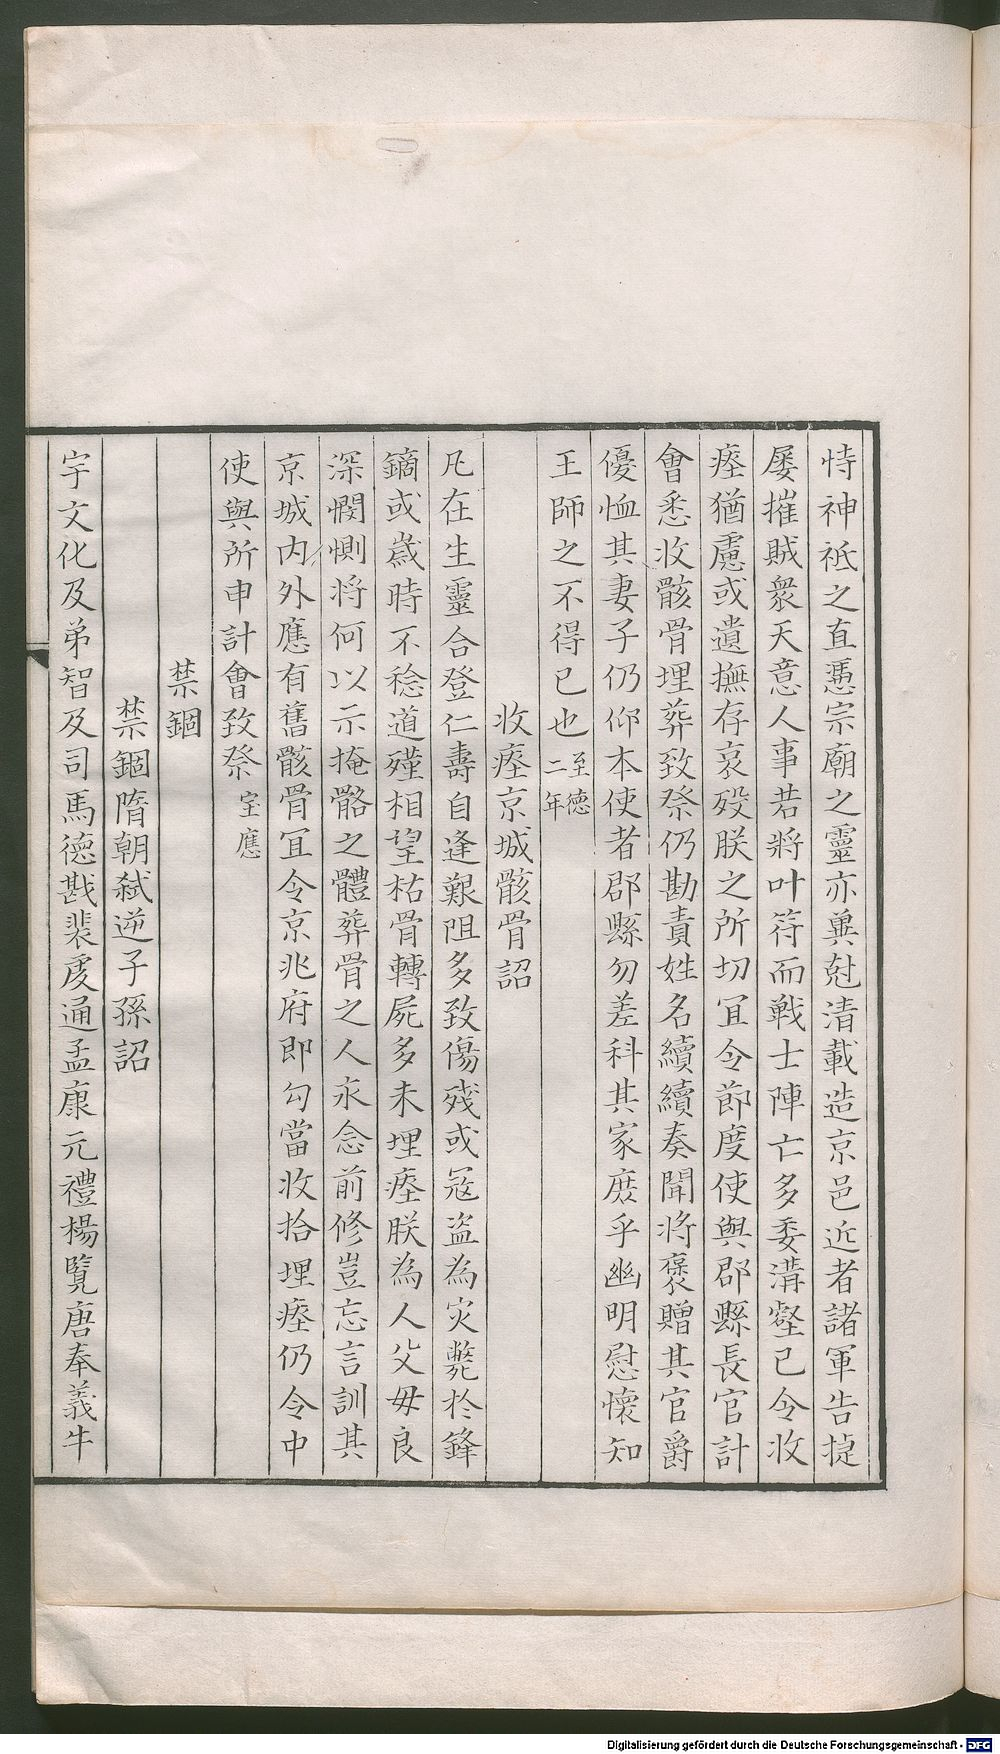 恃神祗之直憑宗廟之靈亦兾尅清載造京邑近者諸軍告捷
屡摧賊衆天意人事若將叶符而戰士陣亡多委溝壑已令收
瘞猶慮或遺撫存哀殁朕之所切冝令節度使與郡縣長官計
會悉收骸骨埋葬致祭仍勘責姓名續續奏聞將襃贈其官爵
優恤其妻子仍仰本使者郡縣勿差科其家庶乎幽明慰懷知
王師之不得已也至德二年
收瘞京城骸骨詔
凡在生靈合登仁壽自逢艱阻多致傷殘或冦盗為灾斃於鋒
鏑或歳時不稔道殣相望枯骨轉屍多未埋瘞朕為人父毋良
深憫惻将何以示掩骼之體葬骨之人永念前修豈忘言訓其
京城内外應有舊骸骨冝令京兆府即勾當收拾埋瘞仍令中
使與所申計會致祭宝應
禁錮
禁錮隋朝弑逆子孫詔
宇文化及弟智及司馬德戡裴虔通孟康元禮楊覽唐奉義牛
Digitalisierung gefördert durch die Deutsche Forschungsgemeinschaft - DFG